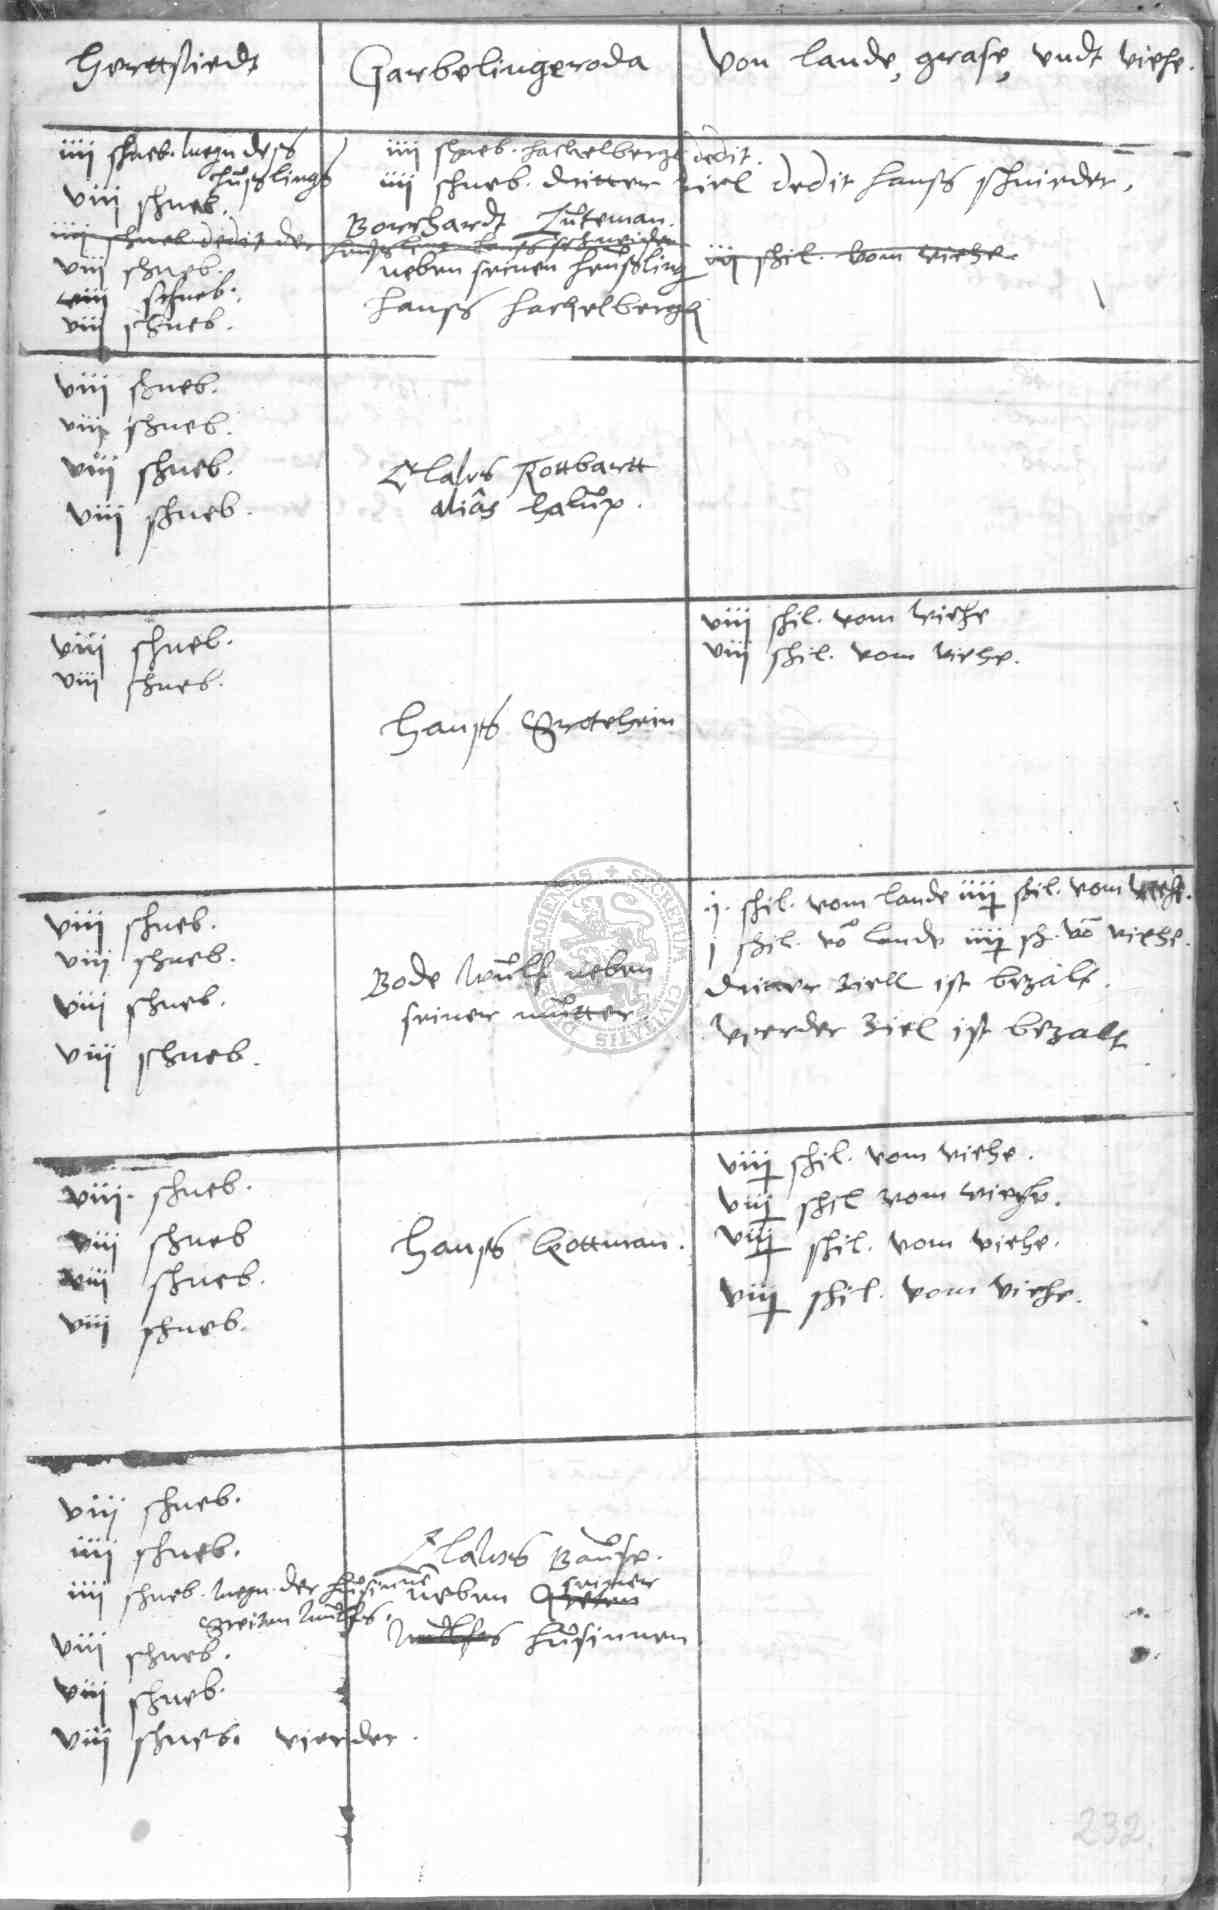 Herttstedt
Garbelingeroda
von lande, grase, vndt viehe.
iiij schneb. wegn dess
hußlings
viij schneb.
iiij schneb dedit der
viij schneb.
viij schneb.
viij schneb.
iiij schneb. Hachelbergk dedit.
iiij schneb. dritter Ziel dedit Hanss schnieder.
Borchardt Luteman
haußling Hanß schneider
neben seinen heußling
Hanss Hachelbergk
iij schil. vom viehe.
viij schneb.
viij schneb.
viij schneb.
viij schneb.
Clawes Rottbartt
aliâs Halup.
viij schneb.
viij schneb.
Hanss Grotehein
viij schil. vom viehe
viij schil. vom viehe.
viij schneb.
viij schneb.
viij schneb.
viij schneb.
Bode Wulf neben
seiner mutter.
j. schil. vom lande iiij schil. vom viehe.
j schil. vo lande iiij sch. vo viehe.
dritter Ziell ist bezalt.
vierder Ziel ist bezalt
viij. schneb.
viij schneb
viij schneb.
viij schneb.
Hanss Kottman.
viij schil. vom viehe.
viij schil vom viehe.
viij schil. vom viehe.
viij schil. vom viehe.
viij schneb.
iiij schneb.
iiij schneb. wegn. der husinne
Greiten Wulfes.
viij schneb.
viij schneb.
viij schneb. vierder.
Clawes Bause.
neben seiner
Greten
Wulfes husinnen
232.
SECRETUM CIVITATIS